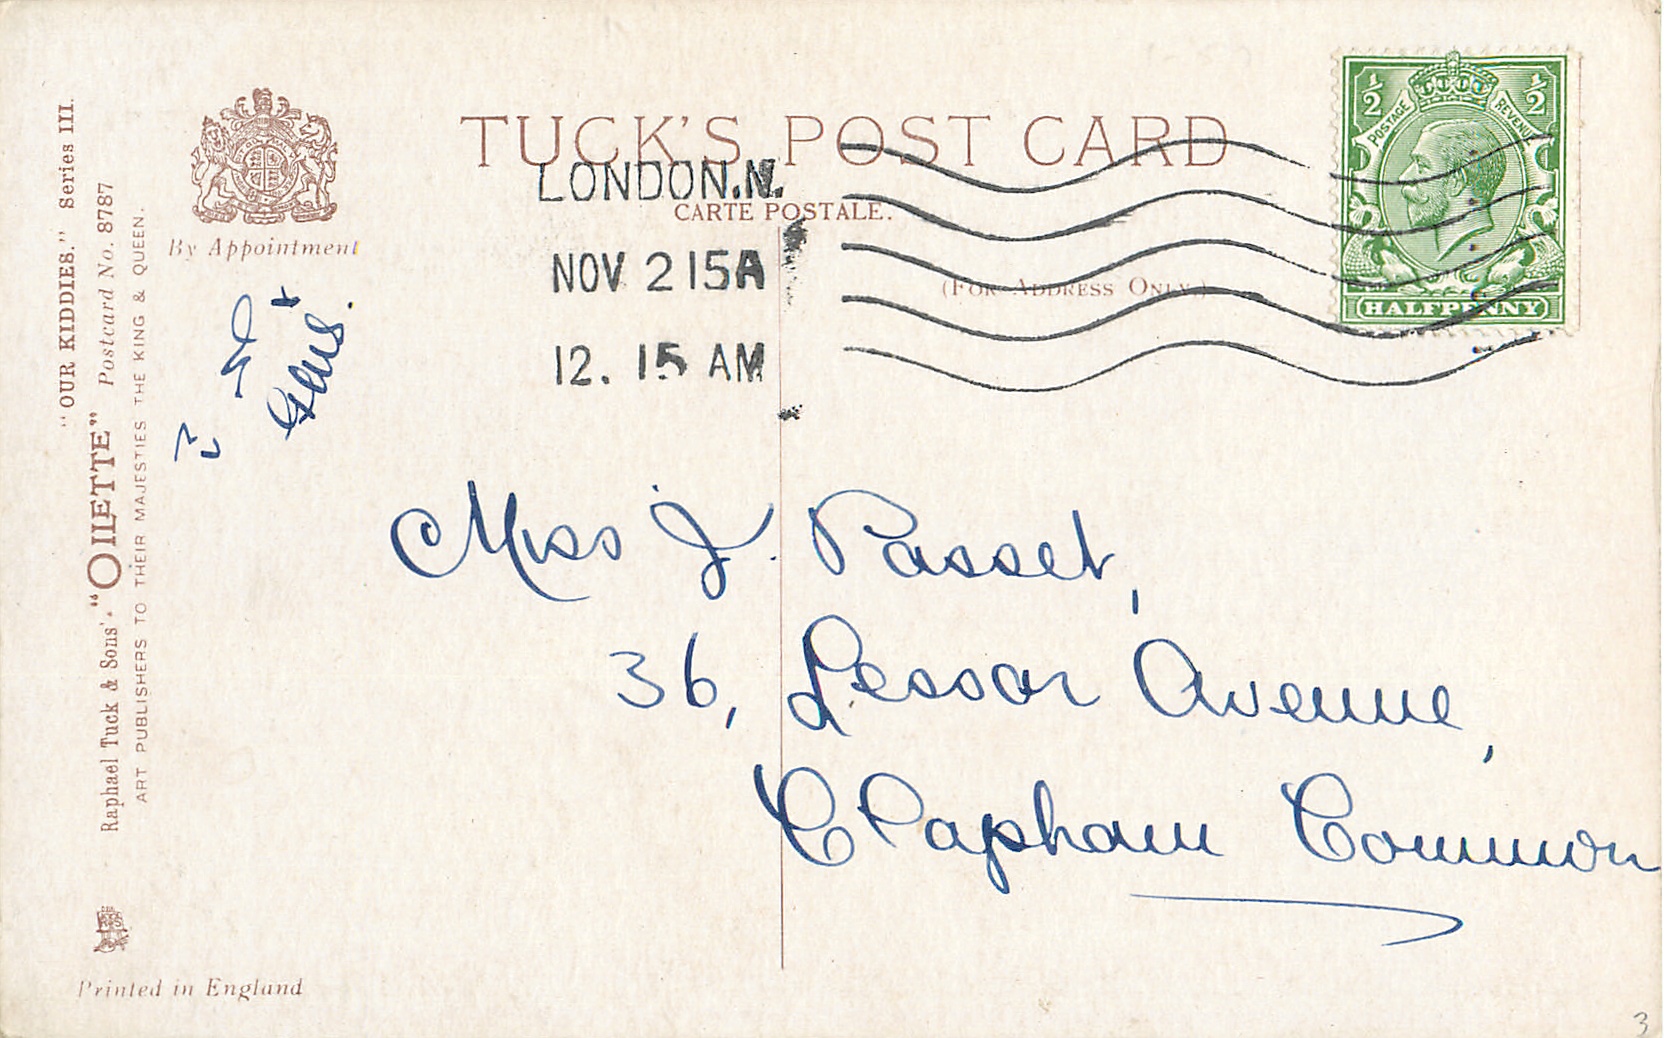 TUCK'S POST CARD
CARTE POSTALE.
(FOR ADDRESS ONLY.)
LONDON.N.
NOV 2 15A
12. 15 AM
1/2 1/2
POSTAGE REVENUE
HALFPENNY
By Appointment
"OUR KIDDIES." Series III.
Raphael Tuck & Sons' "OILETTE" Postcard No. 8787
ART PUBLISHERS TO THEIR MAJESTIES THE KING & QUEEN.
Miss J. Passet,
36, Lessar Avenue,
Clapham Common
Printed in England
3